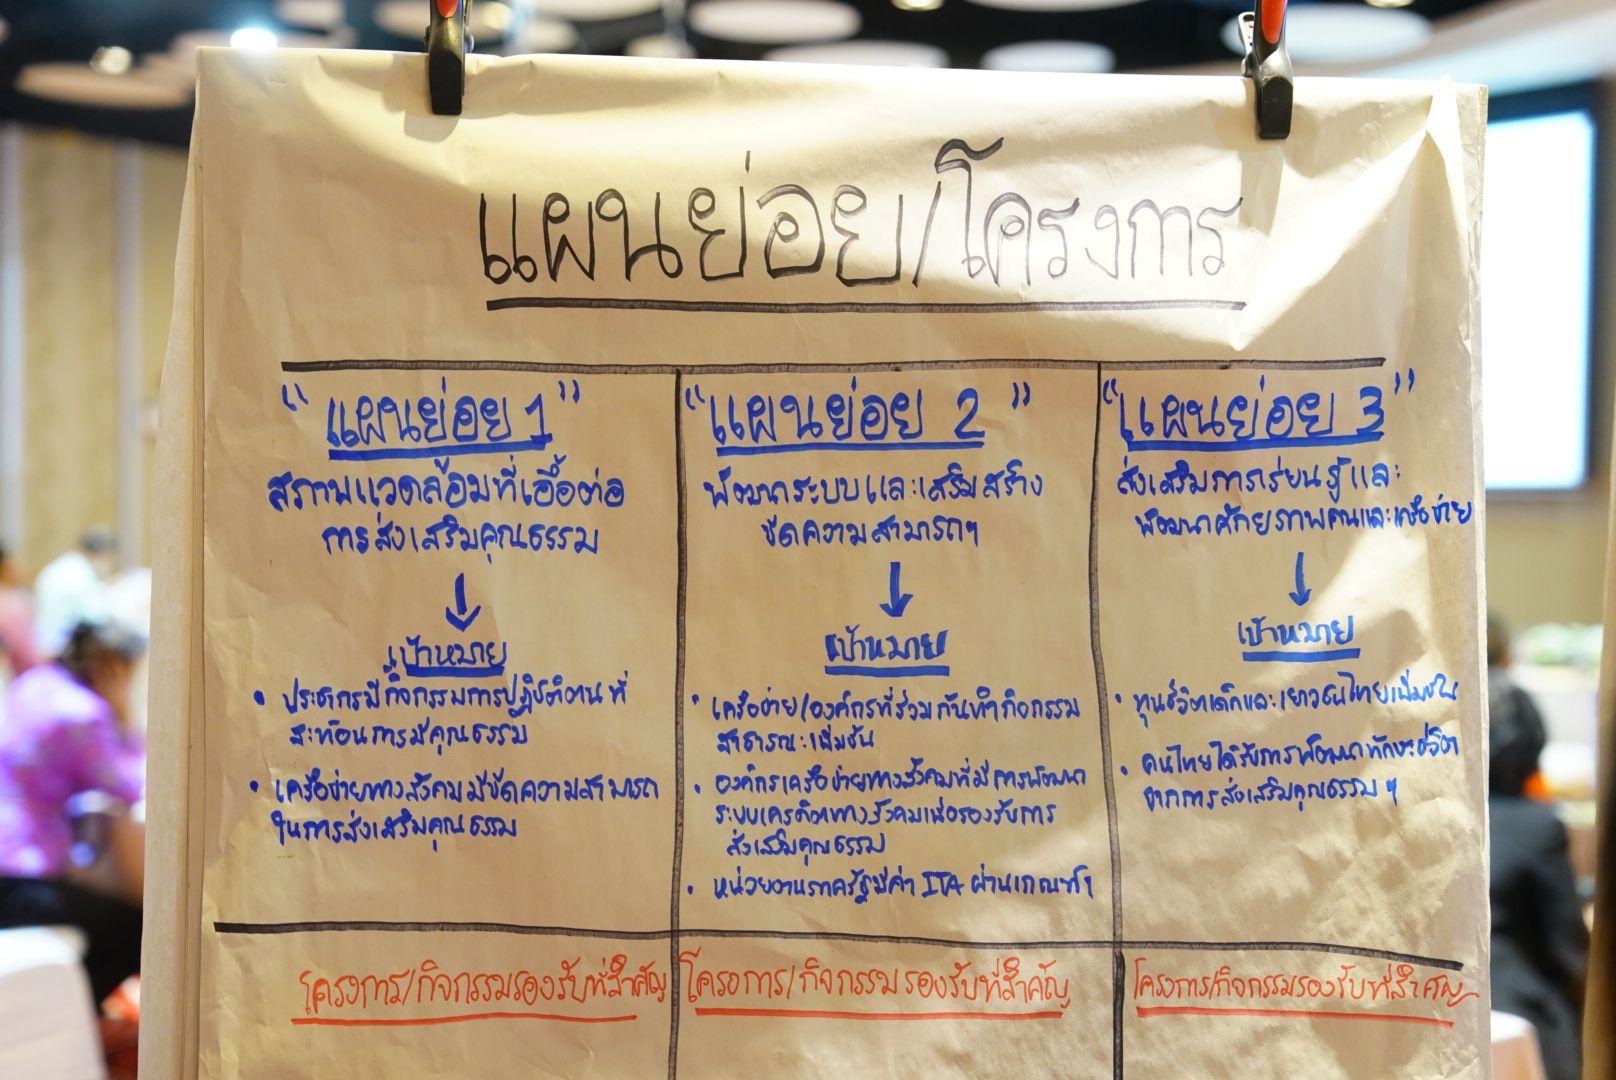 แผนย่อย/โครงการ
"แผนย่อย 1"
สภาพแวดล้อมที่เอื้อต่อ
การส่งเสริมคุณธรรม
เป้าหมาย
• ประชากรมีกิจกรรมการปฏิบัติตนที่
สะท้อนการมีคุณธรรม
• เครือข่ายทางสังคมมีขีดความสามารถ
ในการส่งเสริมคุณธรรม
โครงการ/กิจกรรมรองรับที่สำคัญ
"แผนย่อย 2"
พัฒนาระบบและเสริมสร้าง
ขีดความสามารถฯ
เป้าหมาย
• เครือข่าย/องค์กรที่ร่วมกันทำกิจกรรม
สาธารณะเพิ่มขึ้น
• องค์กรเครือข่ายทางสังคมที่มีการพัฒนา
ระบบเครดิตทางสังคมเพื่อรองรับการ
ส่งเสริมคุณธรรม
• หน่วยงานภาครัฐมีค่า ITA ผ่านเกณฑ์ฯ
โครงการ/กิจกรรมรองรับที่สำคัญ
"แผนย่อย 3"
ส่งเสริมการเรียนรู้และ
พัฒนาศักยภาพคนและเครือข่าย
เป้าหมาย
• ทุนชีวิตเด็กและเยาวชนไทยเพิ่มขึ้น
• คนไทยได้รับการพัฒนาทักษะชีวิต
จากการส่งเสริมคุณธรรมฯ
โครงการ/กิจกรรมรองรับที่สำคัญ